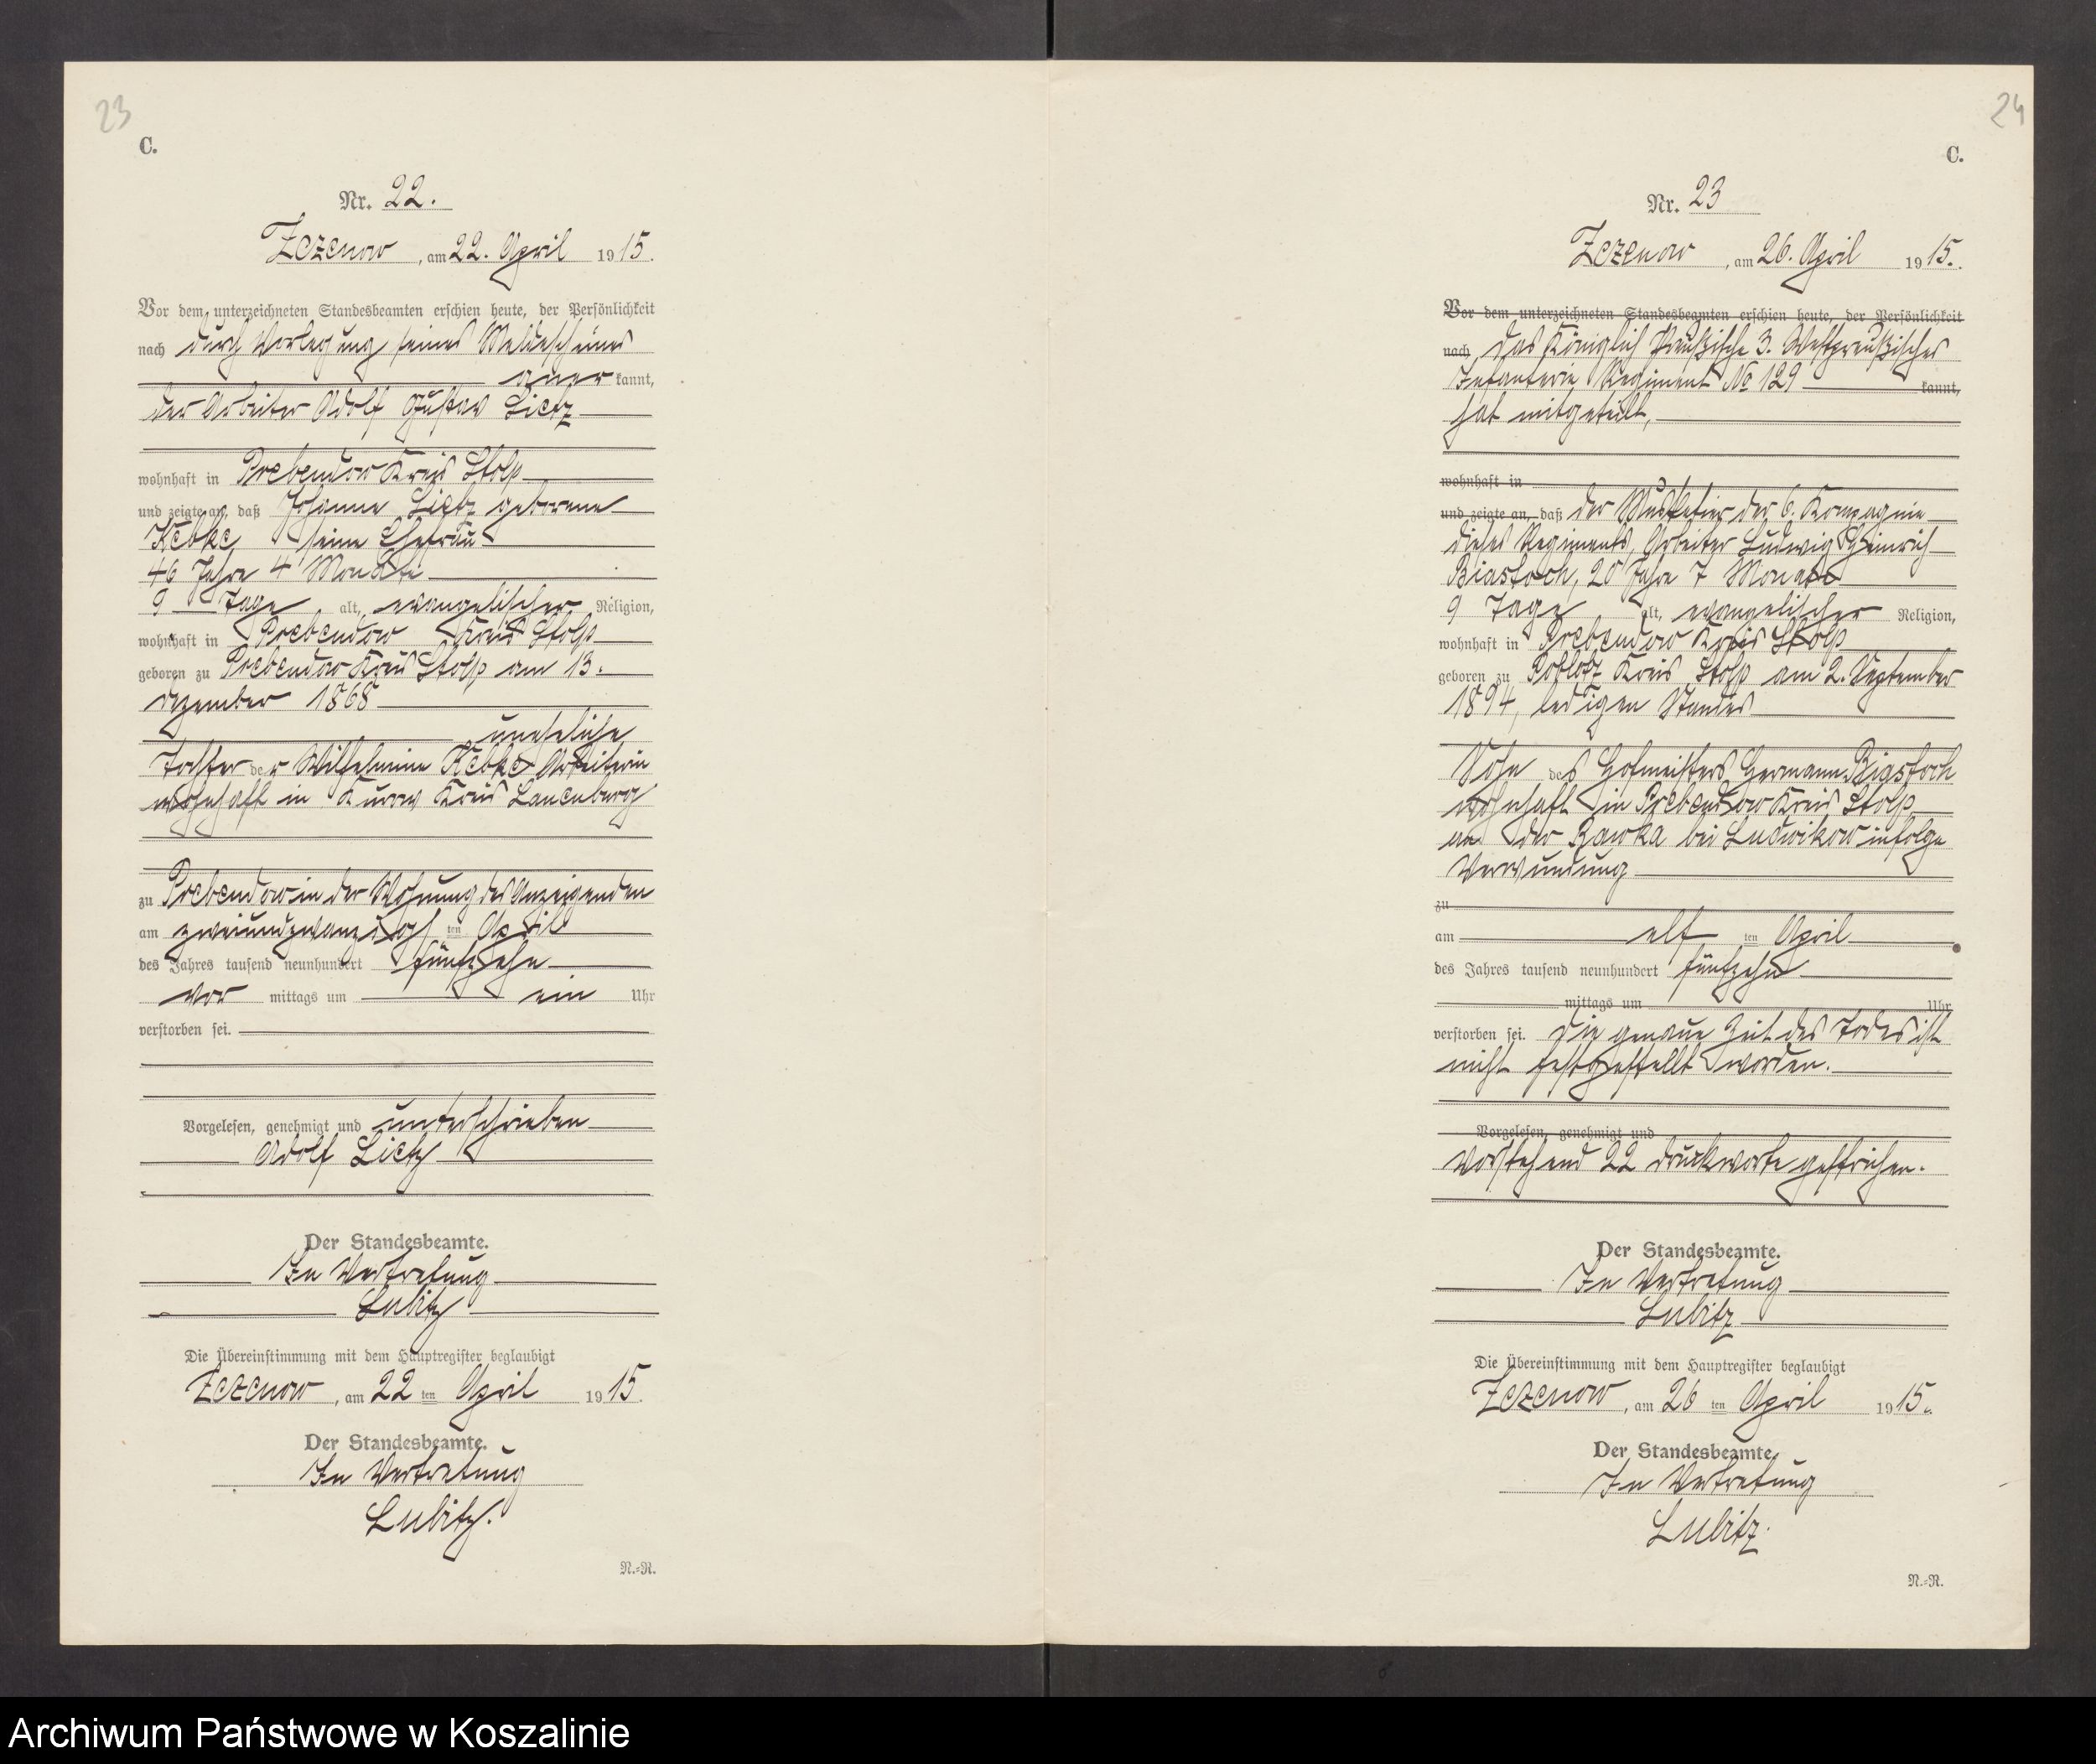 23
C.
Nr. 22.
Zezenow, am 22. April 1915.
Vor dem unterzeichneten Standesbeamten erschien heute, der Persönlichkeit
nach durch Vorlegung seines Meldescheines
anerkannt,
der Arbeiter Adolf Gustav Lietz
wohnhaft in Prebendow Kreis Stolp
und zeigte an, daß Johanne Lietz geborene
Kebke, seine Ehefrau
46 Jahre 4 Monate
9 Tage alt, evangelischer Religion,
wohnhaft in Prebendow Kreis Stolp
geboren zu Prebendow Kreis Stolp am 13.
Dezember 1868
uneheliche
Tochter der Wilhelmine Kebke Arbeiterin
wohnhaft in Kurow Kreis Lauenburg
zu Prebendow in der Wohnung des Anzeigenden
am zweiundzwanzigsten April
des Jahres tausend neunhundert fünfzehn
vor mittags um ein Uhr
verstorben sei.
Vorgelesen, genehmigt und unterschrieben
Adolf Lietz
Der Standesbeamte.
In Vertretung
Lubitz
Die Übereinstimmung mit dem Hauptregister beglaubigt
Zezenow, am 22 ten April 1915.
Der Standesbeamte.
In Vertretung
Lubitz.
N.=R.
24
C.
Nr. 23
Zezenow, am 26. April 1915.
Vor dem unterzeichneten Standesbeamten erschien heute, der Persönlichkeit
nach Das Königlich Preußische 3. Westpreußisches
Infanterie Regiment No 129 kannt,
hat mitgeteilt,
wohnhaft in
und zeigte an, daß der Musketier der 6. Kompagnie
dieses Regiments, Arbeiter Ludwig Heinrich
Biastoch, 20 Jahre 7 Monate
9 Tage alt, evangelischer Religion,
wohnhaft in Prebendow Kreis Stolp
geboren zu Poblotz Kreis Stolp am 2. September
1894, ledigen Standes
Sohn des Hofmeisters Hermann Biastoch
wohnhaft in Prebendow Kreis Stolp
an der Rawka bei Ludwikow infolge
Verwundung
zu
am elf ten April
des Jahres tausend neunhundert fünfzehn
mittags um Uhr
verstorben sei. Die genaue Zeit des Todes ist
nicht festgestellt worden.
Vorgelesen, genehmigt und
Vorstehend 22 Druckworte gestrichen.
Der Standesbeamte.
In Vertretung
Lubitz
Die Übereinstimmung mit dem Hauptregister beglaubigt
Zezenow, am 26 ten April 1915.
Der Standesbeamte
In Vertretung
Lubitz.
N.=R.
Archiwum Państwowe w Koszalinie